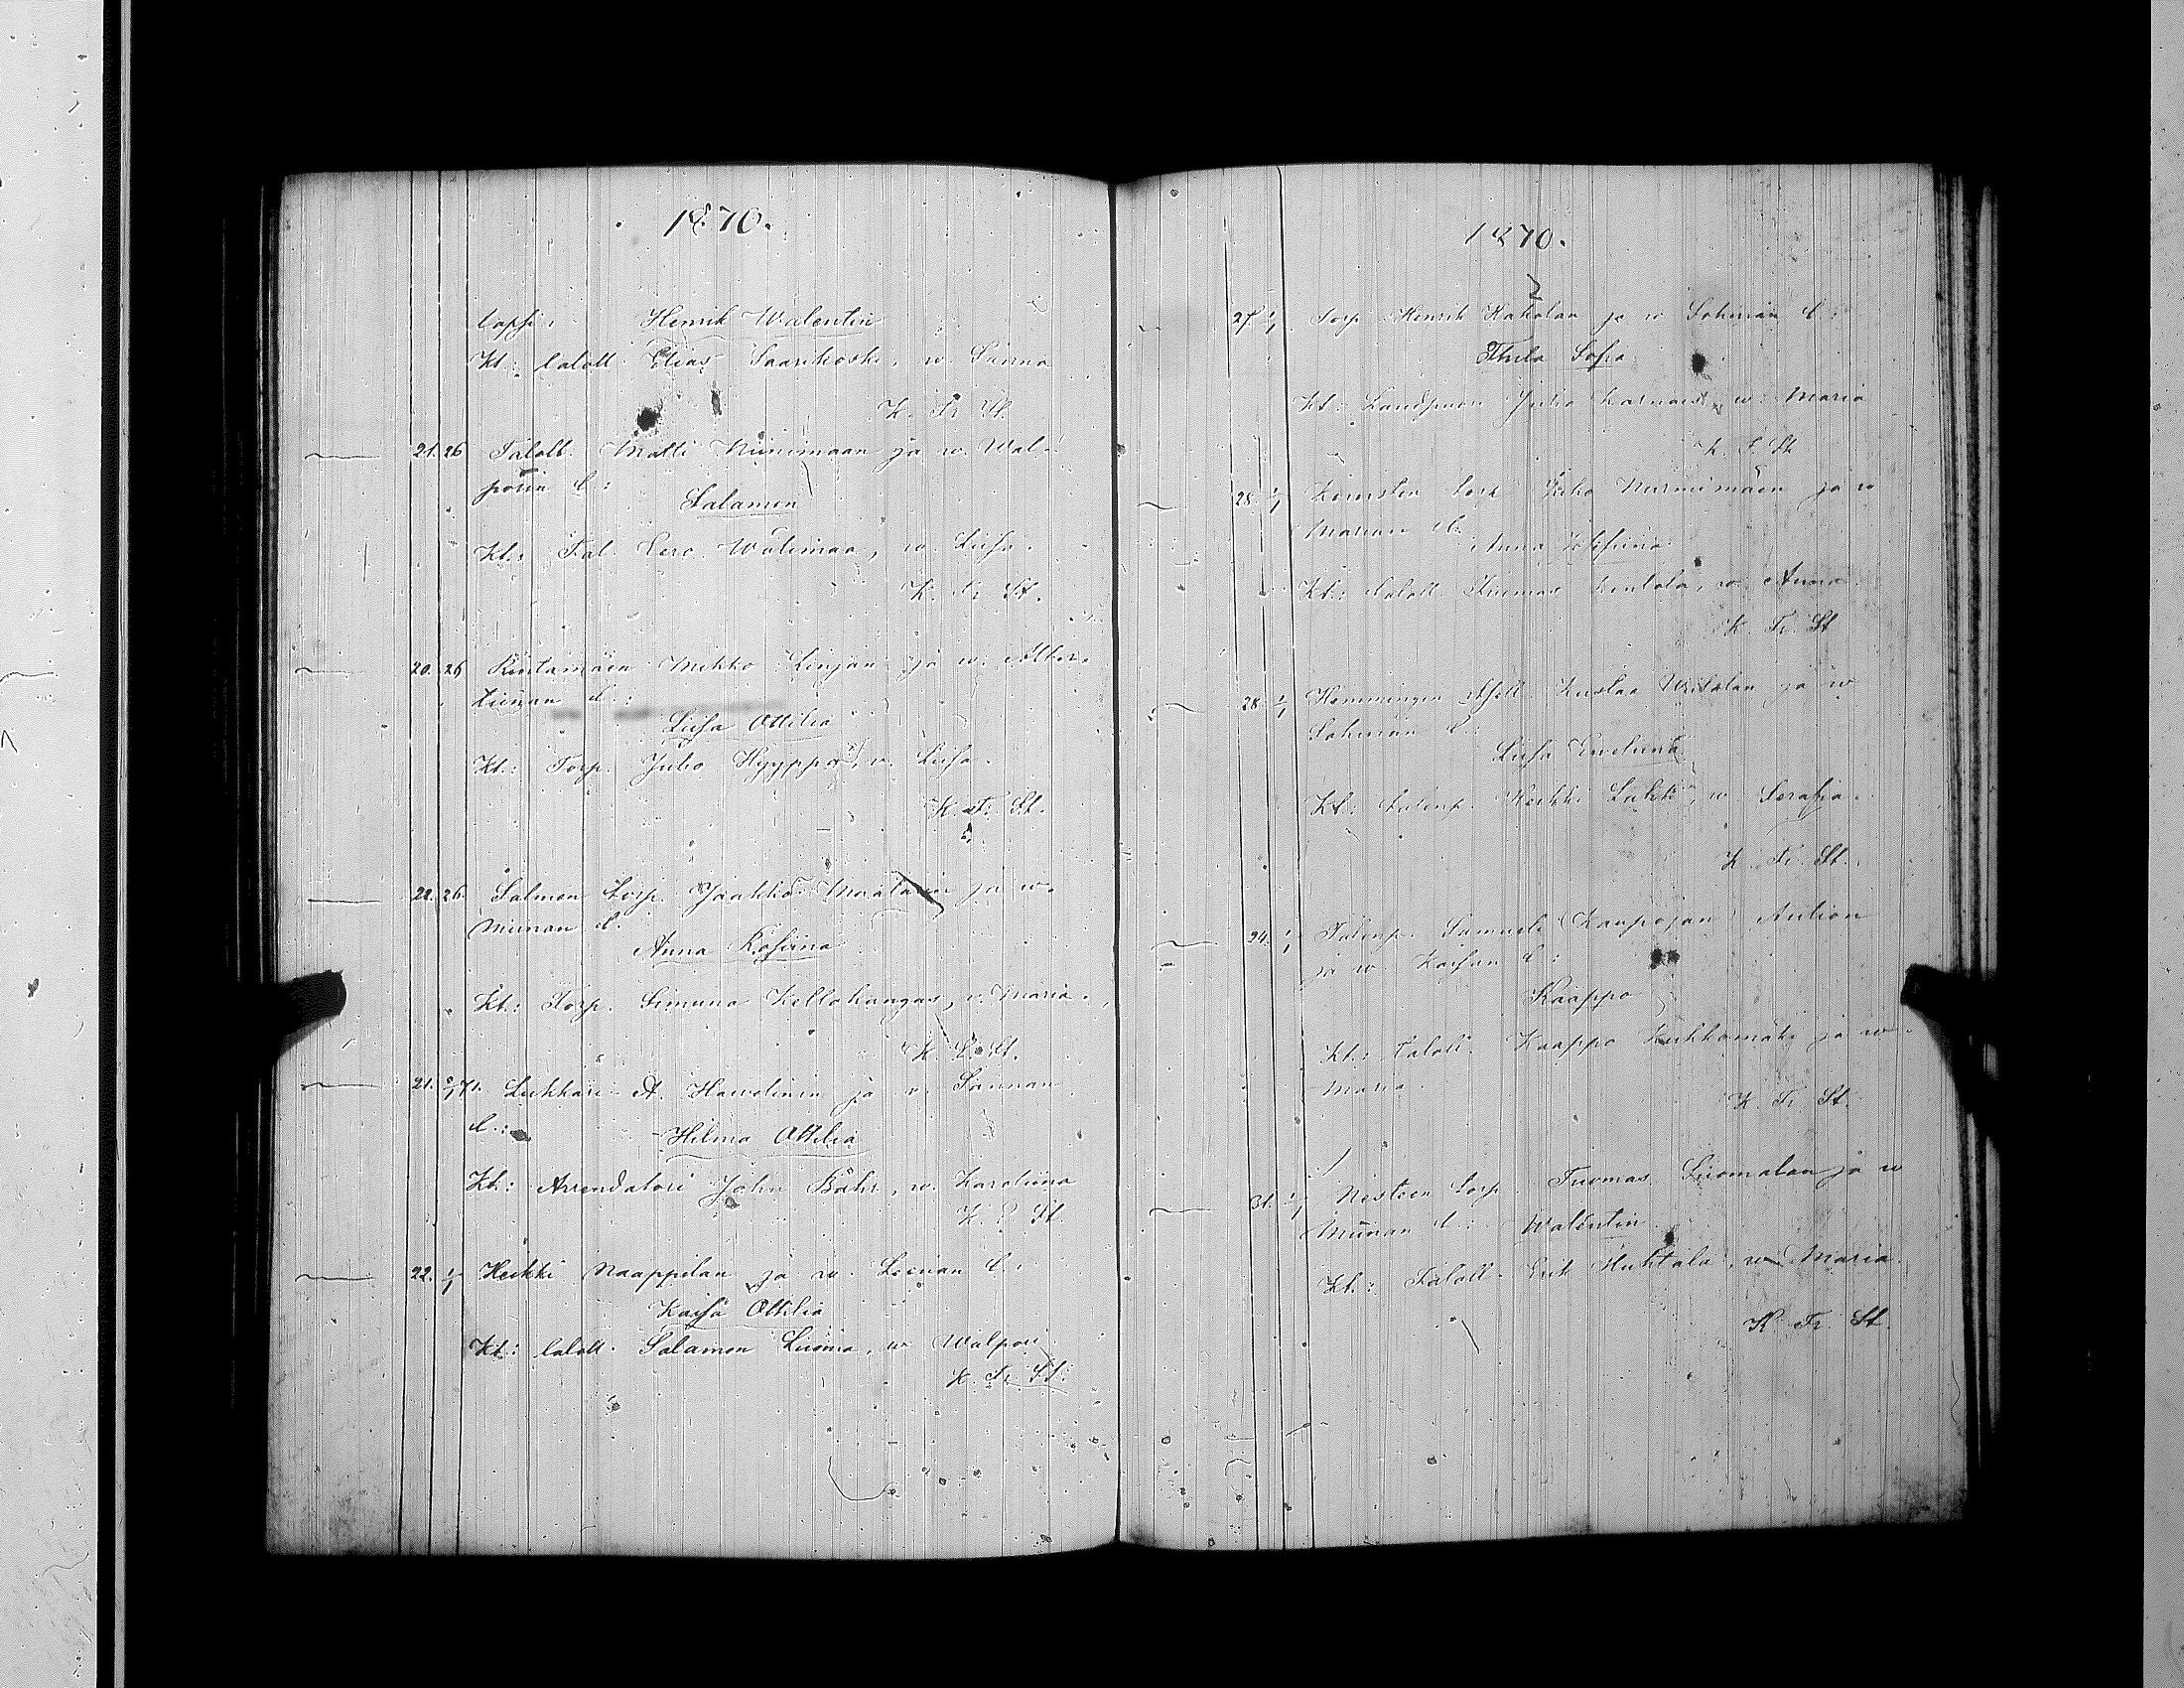 1870.
lapsi: Henrik Walentin
Kt.: taloll. Elias Saarikoski, w. Sanna
K. Tr. St.
21. 26 Taloll. Matti Niinimaan ja w. Wal-
porin l.:
Salamon
Kt.: Tal. Eero Wälimaa, w. Liisa.
K. Tr. St.
20. 26 Rintamäen Mikko Linjan ja w. Alber-
tiinan l.:
Liisa Ottilia
Kt.: Torp. Juho Hyyppä, w. Liisa.
K. Tr. St.
22. 26. Salmen torp. Jaakko ja w.
Miinan l.
Anna Rosiina
Kt.: Torp. Simuna Kellokangas, w. Maria.
K. St.
21. 71. Lukkari A. Hawelinin ja w. Sannan
l.:
Hilma Ottilia
Kt.: Arrendatori John Bähr, w. Karoliina
K. St.
22. 1/1 Heikki Naappilan ja w. Leenan l.:
Kaisa Ottilia
Kt.: taloll. Salamon Luoma, w Walpori
K. Tr. St.
1870.
2
27. 1/1 Torp. Henrik Hakolan ja w l.:
Thilda Sofia
Kt.: Juho w. Maria
K. T. St
28. 1/1 torp Juho Nurmimäen ja w
Marian l.:
Anna
Kt.: taloll. Tuomas w. Anna.
K. Tr. St
28. 1/1 Hemmingin Kustaa ja w
l.:
Liisa Eweliina
Kt.: Heikki w Serafia.
K. Tr. St.
24. 1/1 Samuli (Kaapojan) Aution
ja w Kaisan l:
Kaappo
Kt.: taloll. Kaappo Kuhkomäki ja w.
Maria.
K. Tr. St.
31. 1/1 Nesteen torp. Tuomas Luomalan ja w
Miinan l.: Walentin
Kt.: Taloll. Erik Huhtala, w Maria.
K Tr St.